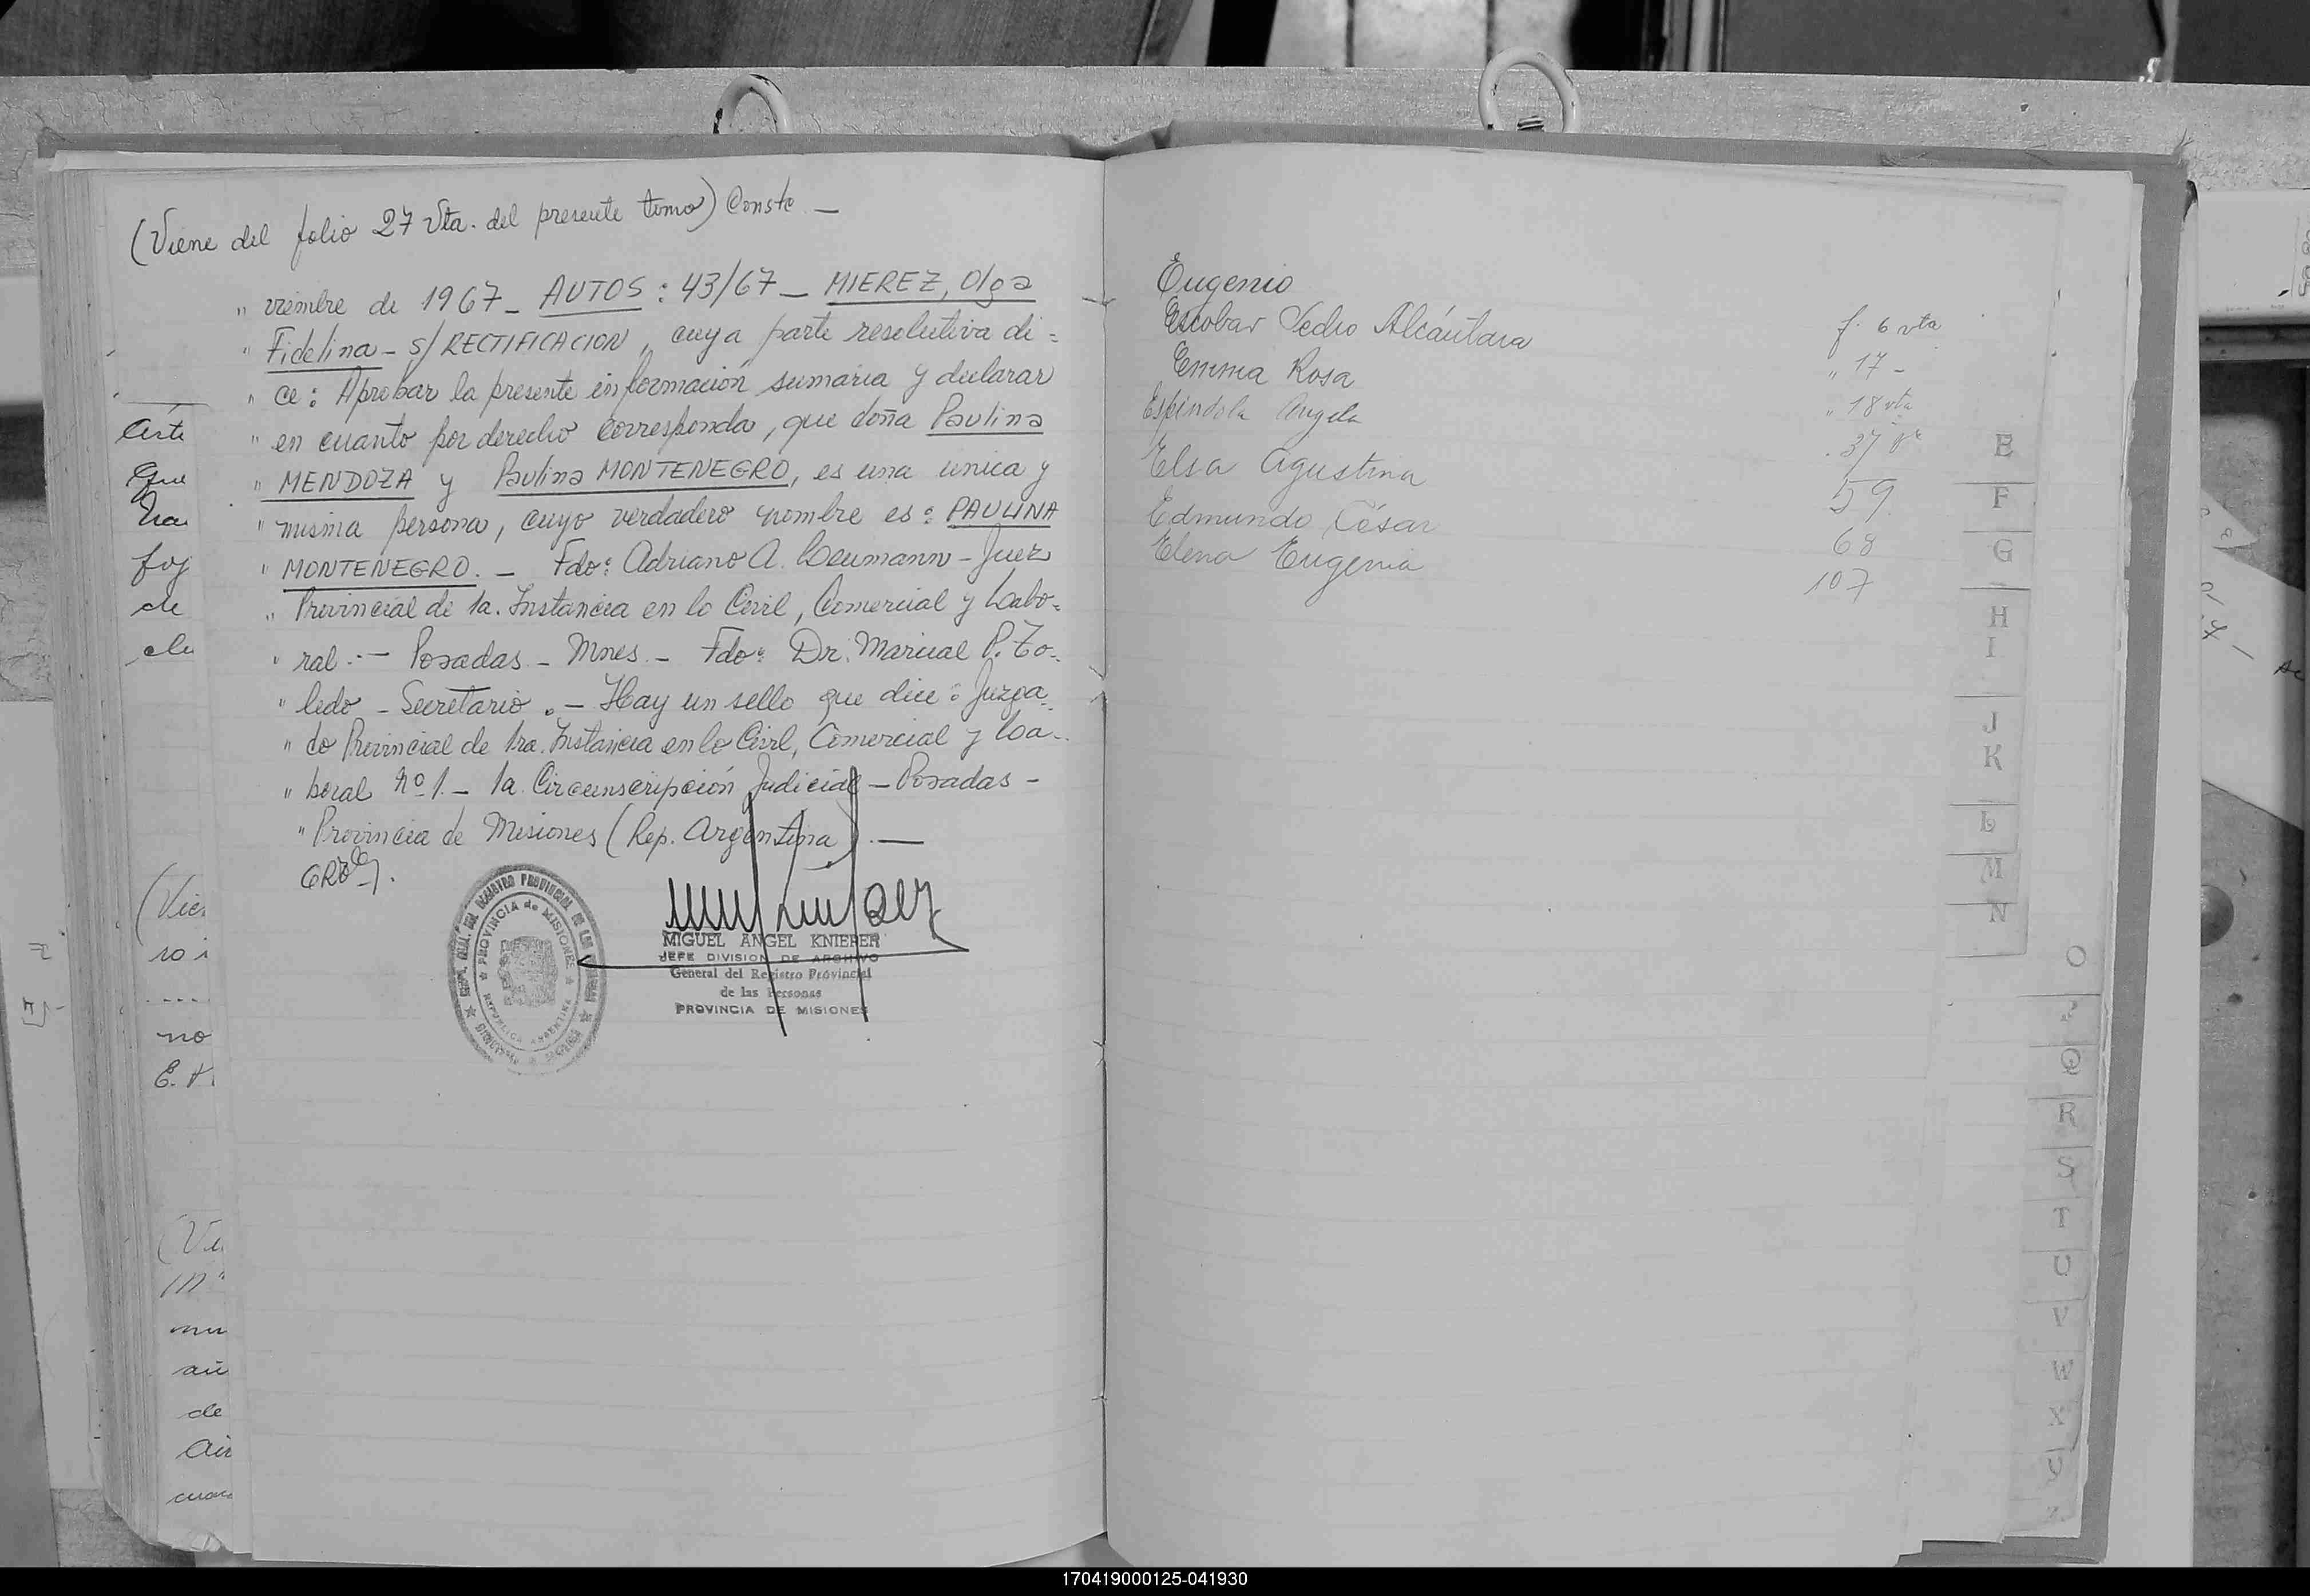 (Viene del folio 27 Vta. del presente tomo) Conste —
" viembre de 1967 - AUTOS : 43/67 - MIEREZ, Olga
" Fidelina - S/ RECTIFICACION, cuya parte resolutiva di =
" ce : Aprobar la presente información sumaria y declarar
" en cuanto por derecho corresponda, que doña Paulina
" MENDOZA y Paulina MONTENEGRO, es una unica y
" misma persona, cuyo verdadero nombre es : PAULINA
" MONTENEGRO. - Fdo: Adriano A. - Juez
" Provincial de 1a. Instancia en lo Civil, Comercial y Labo-
" ral .- Posadas - Mnes. - Fdo: Dr. Marcial P. To-
" ledo - Secretario . - Hay un sello que dice : Juzga-
" do Provincial de 1ra. Instancia en lo Civil, Comercial y La-
" boral nº 1. - 1a. Circunscripción Judicial - Posadas -
" Provincia de Misiones (Rep. Argentina) . —
PROVINCIA de MISIONES
REPUBLICA ARGENTINA
MIGUEL ANGEL KNIEPER
JEFE DIVISION DE ARCHIVO
General del Registro Provincial
de las Personas
PROVINCIA DE MISIONES
Arte
Que
foj
de
(Vie
no
de
Eugenio f. 6 vta
Escobar Pedro Alcántara " 17 -
Emma Rosa " 18 vta
Espindola Angela 37
Elsa Agustina 59
Edmundo César 68
Elena Eugenia 107
E
F
G
H
I
J
K
L
M
N
O
P
Q
R
S
T
U
V
W
X
Y
Z
170419000125-041930